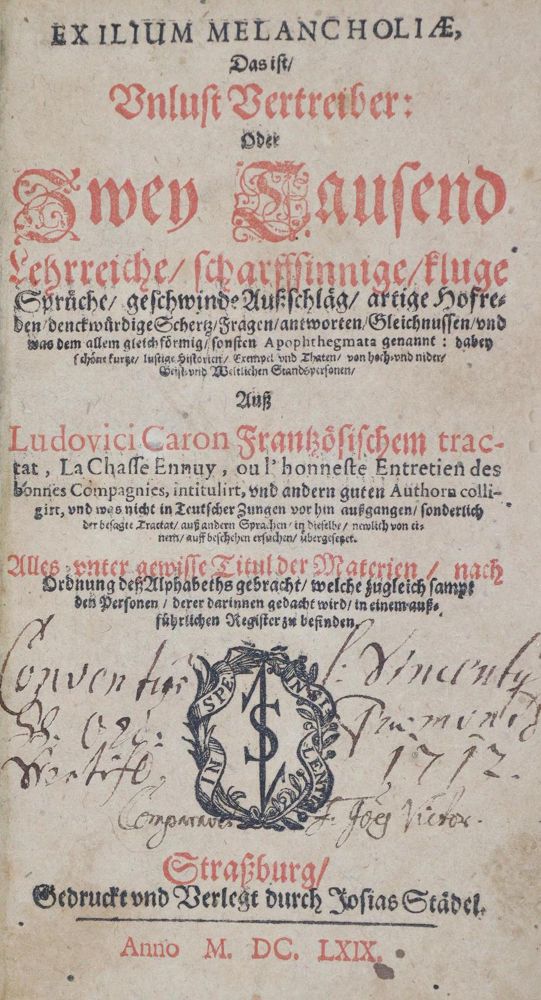 EXILIUM MELANCHOLIÆ,
Das ist/
Vnlust Vertreiber:
Oder
Zwey Tausend
Lehrreiche/ scharffsinnige/ kluge
Sprüche/ geschwinde Außschläg/ artige Hofre-
den/ denckwürdige Schertz/ Fragen/ antworten/ Gleichnussen/ vnd
was dem allem gleichförmig/ sonsten Apophthegmata genannt: dabey
schöne kurtze/ lustige Historien/ Exempel vnd Thaten/ von hoch- vnd nider/
Geist- vnd Weltlichen Standspersonen/
Auß
Ludovici Caron Frantzösischem trac-
tat, La Chasse Ennuy, ou l'honneste Entretien des
bonnes Compagnies, intitulirt, vnd andern guten Authorn colli-
girt, vnd was nicht in Teutscher Zungen vor hin außgangen/ sonderlich
der besagte Tractat/ auß andern Sprachen/ in dieselbe/ newlich von ei-
nem/ auff beschehen ersuchen/ übergesetzet.
Alles vnter gewisse Titul der Materien/ nach
Ordnung deß Alphabeths gebracht/ welche zugleich sampt
den Personen/ derer darinnen gedacht wird/ in einem auß-
führlichen Register zu befinden.
Conventus S. Vincentij
IN SPE ET SILENTIO
1712.
Comparavit F. Jog Victor.
Straßburg/
Gedruckt vnd Verlegt durch Josias Städel.
Anno M. DC. LXIX.